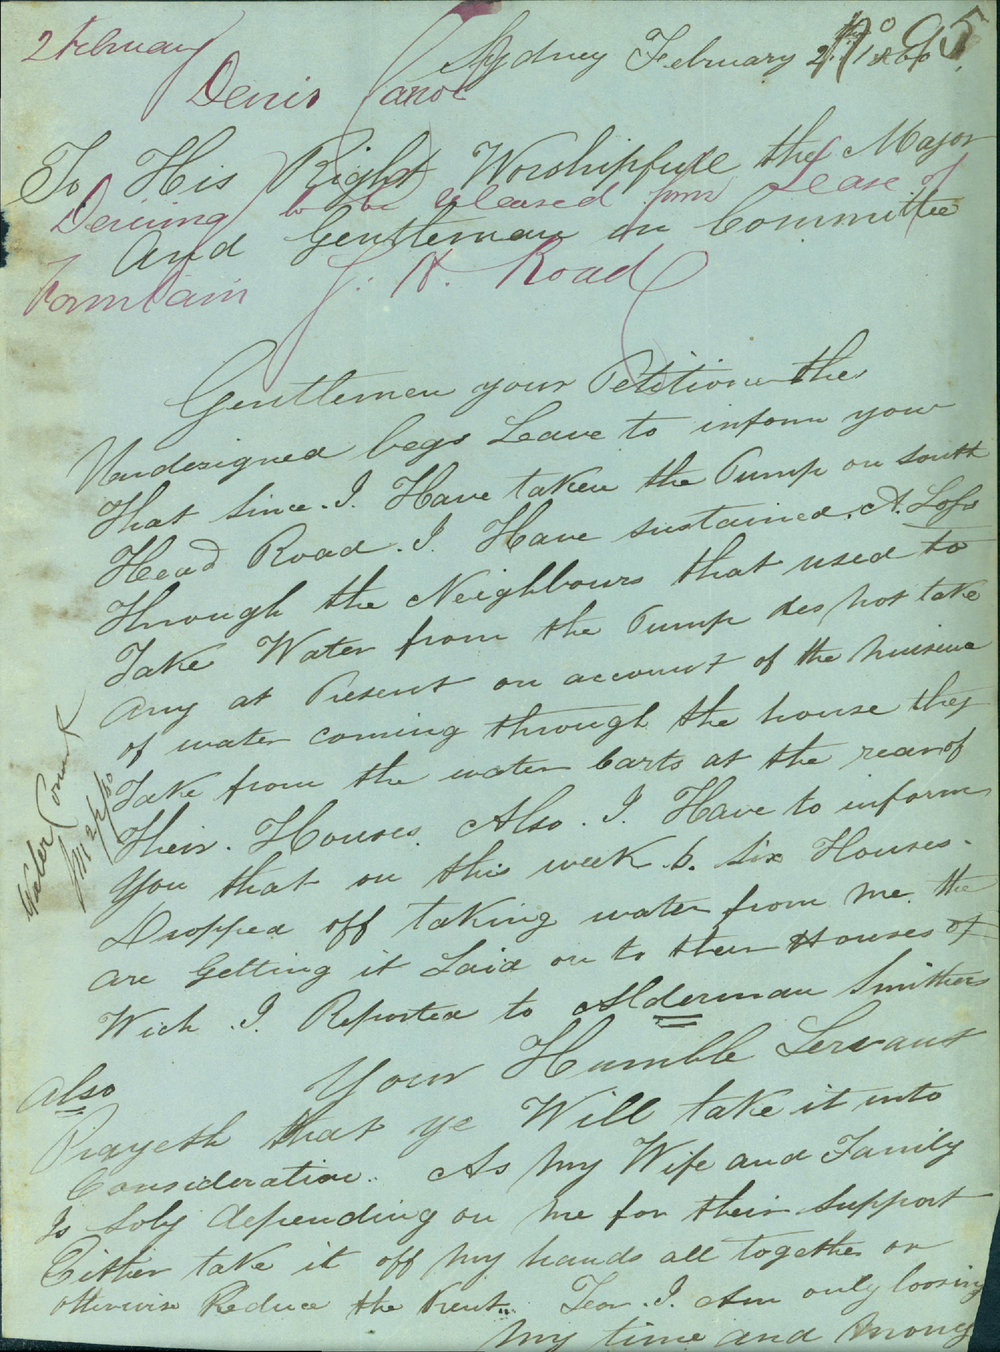 2 February
No 95
Sydney February 2nd 1860
Denis Carol
To His Right Worshipfull the Major
Desiring to be released from Lease of
And Gentleman in Committee
Fountain S. H. Road
Gentlemen your Petitioner the
Vondesigned begs Leave to inform your
that since. I. Have taken the Pump on South
Head Road. I. Have sustained. A. Loss
through the Neighbours that used to
Take Water from the Pump des not take
any at Present on account of the nuisince
of water coming through the house they
Take from the water carts at the rear of
their. Houses. Also. I. Have to inform
You that on this week 6. six Houses.
Dropped off taking water from me the
are Getting it Laid on to their Houses of
Wich. I. Reported to Alderman Smithers
Water Comtt
2/2/60
Your Humble Servant
also
Prayeth that ye Will take it into
Consideration. As my Wife and Family
Is Soly depending on me for their support
Either take it off my hands all together or
otherwise Reduce the Rent. For. I. Am only loosing
my time and money